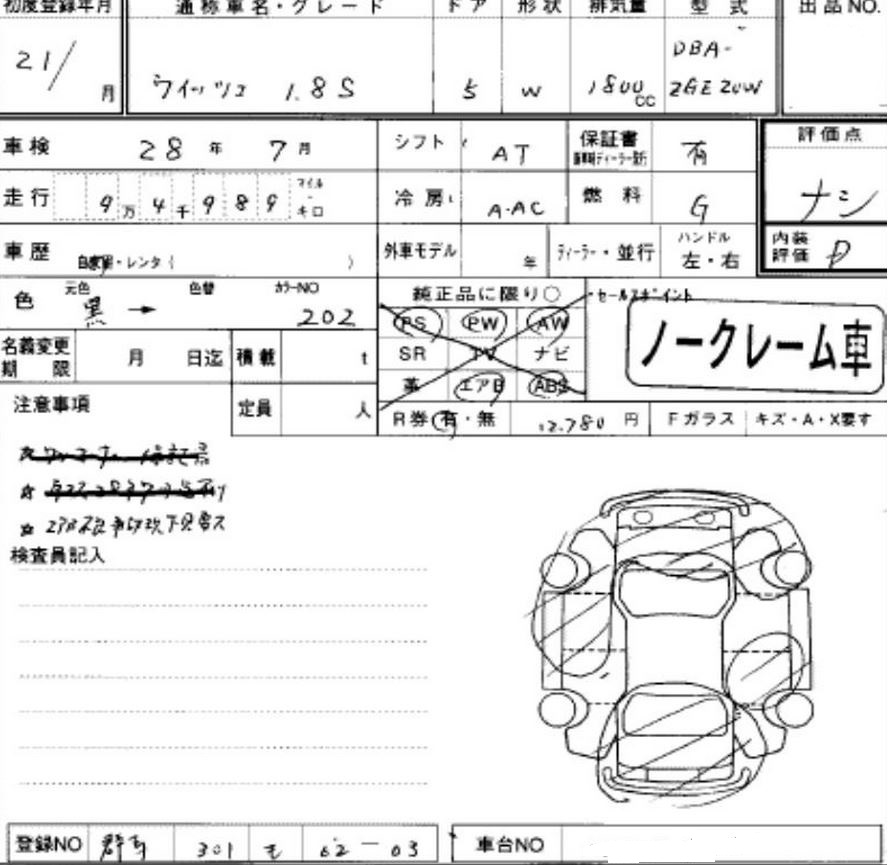 初度登録年月 通称車名・グレード ドア 形状 排気量 型式 出品NO.
21/ 月 ウィッシュ 1.8S 5 W 1800cc DBA-
ZGE20W
車検 28年 7月 シフト AT 保証書 有 評価点
走行 9万4千989 マイル・キロ 冷房 A・AC 燃料 G ナシ
車歴 自家用・レンタ( ) 外車モデル 年 ディーラー・並行 ハンドル 左・右 内装評価 D
色 元色 黒 → 色替 カラーNO 202 純正品に限り○ ・セールスポイント
PS PW AW
名義変更期限 月 日迄 積載 t SR TV ナビ ノークレーム車
革 エアB ABS
注意事項 定員 人 R券 有・無 12,780円 Fガラス キズ・A・X要す
検査員記入
登録NO 群馬 301 も 62-03 車台NO